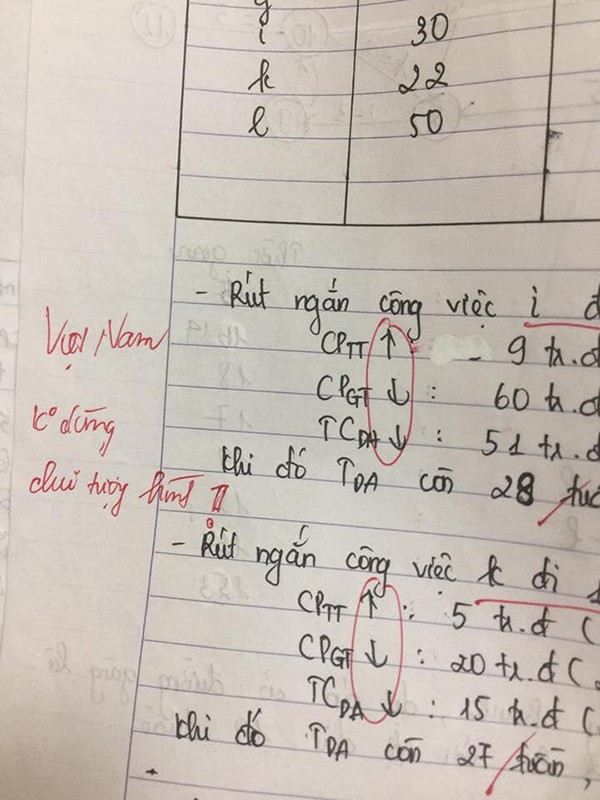 i 30
k 22
l 50
- Rút ngắn công việc i đ
CPTT ↑ - 9 tr.đ
CPGT ↓ : 60 tr.đ
TCDA ↓ : 51 tr.đ
khi đó TDA còn 28 tuần
Việt Nam
ko dùng
chữ tượng hình
- Rút ngắn công việc k đi 1
CPTT ↑ : 5 tr.đ (
CPGT ↓ : 20 tr.đ (
TCDA ↓ : 15 tr.đ (
khi đó TDA còn 27 tuần,